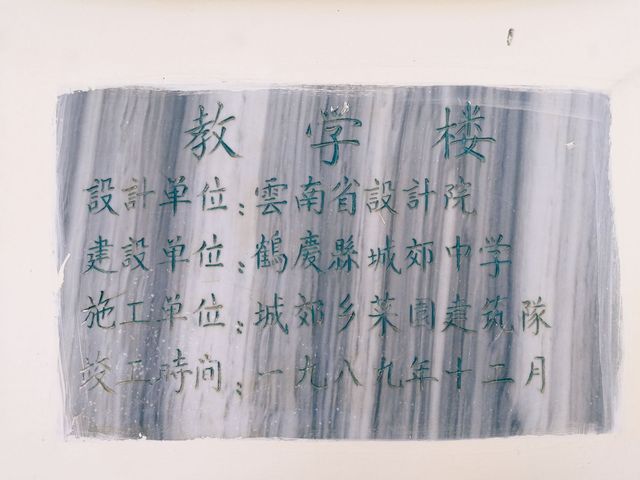 教学楼
設計单位：雲南省設計院
建設单位：鶴慶縣城郊中学
施工单位：城郊乡菜园建筑隊
竣工時间：一九八九年十二月